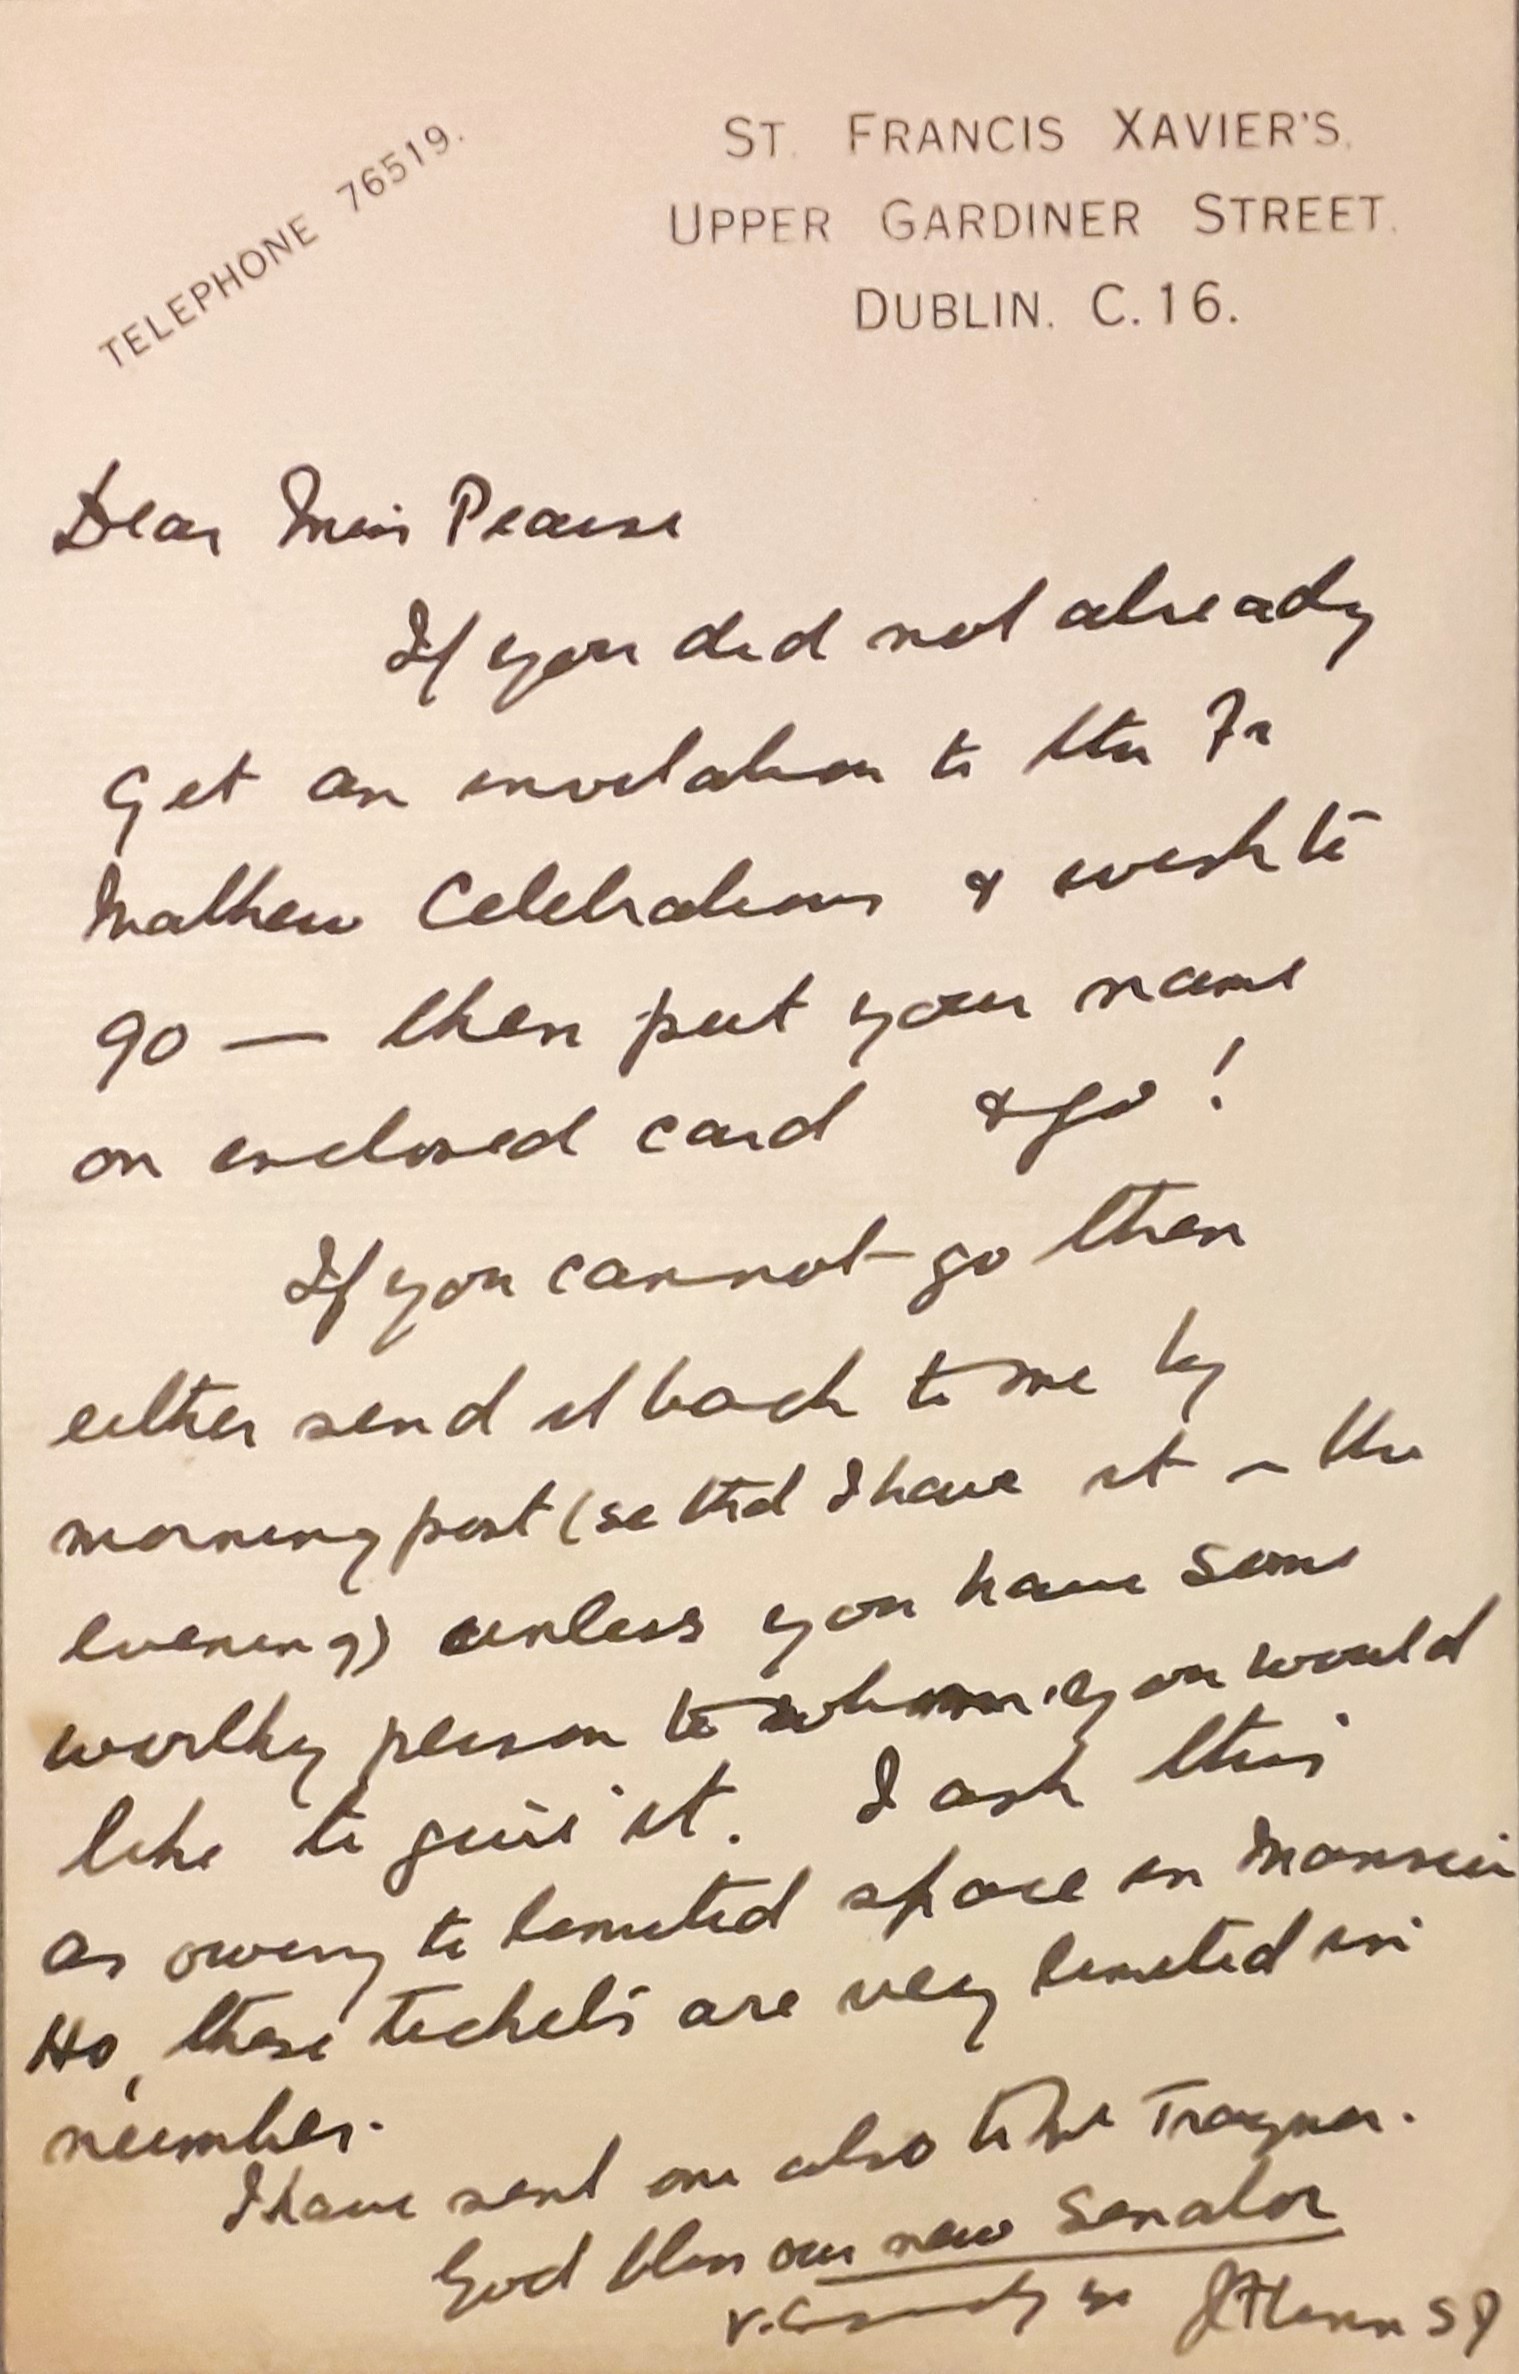 TELEPHONE 76519.
ST. FRANCIS XAVIER'S.
UPPER GARDINER STREET.
DUBLIN. C.16.
Dear Miss Pearse
If you did not already
get an invitation to the Fr
Mathew Celebrations & wish to
go — then put your name
on enclosed card & go!
If you cannot go then
either send it back to me by
morning post (so that I have it in the
evening) unless you have some
worthy person to whom you would
like to give it. I ask this
as owing to limited space in Mansion
Ho, these tickets are very limited in
number.
I have sent one also to Traynor.
God bless our new Senator
J Flinn SJ